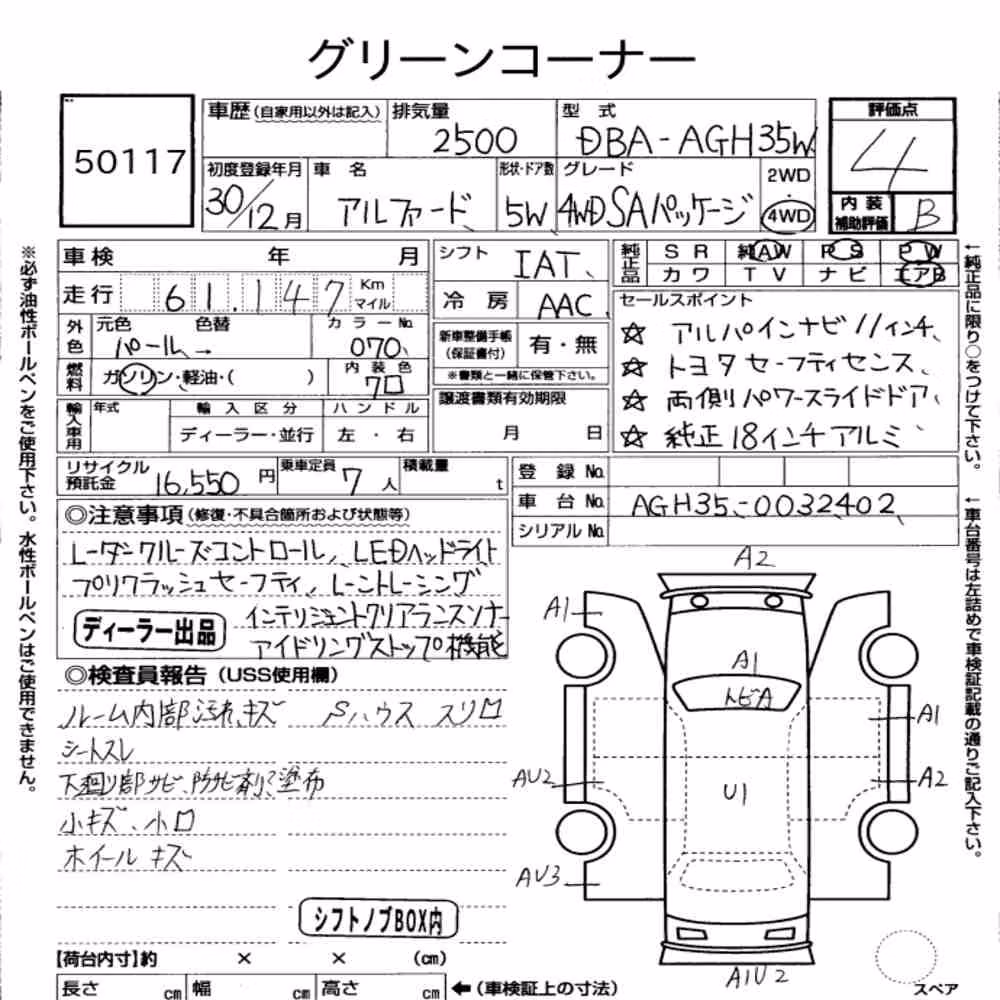 グリーンコーナー
50117
車歴(自家用以外は記入)
排気量
2500
型 式
DBA-AGH35W
評価点
4
初度登録年月
30/12月
車 名
アルファード
形状・ドア数
5W
グレード
4WD SAパッケージ
2WD
・
4WD
内 装
補助評価
B
車検 年 月
走行 61,147 Km
マイル
外色
元色 色替
パール
カラーNo.
070
燃料
ガソリン・軽油・( )
内装色
クロ
輸入車用
年式
輸入区分
ディーラー・並行
ハンドル
左・右
シフト
IAT
冷房
AAC
新車整備手帳
(保証書付)
有・無
※書類と一緒に保管下さい。
譲渡書類有効期限
月 日
純正品
SR 純AW PS PW
カワ TV ナビ エアB
セールスポイント
☆ アルパインナビ11インチ
☆ トヨタセーフティセンス
☆ 両側パワースライドドア
☆ 純正18インチアルミ
リサイクル
預託金
16,550 円
乗車定員
7 人
積載量
t
登録No.
車台No. AGH35-0032402
シリアルNo.
◎注意事項(修復・不具合箇所および状態等)
レーダークルーズコントロール、LEDヘッドライト
プリクラッシュセーフティ、レーントレーシング
インテリジェントクリアランスソナー
ディーラー出品
アイドリングストップ機能
◎検査員報告(USS使用欄)
ルーム内部汚れ、キズ Sハウス スリキズ
シートスレ
下廻り部サビ、防サビ剤塗布
小キズ、小凹
ホイールキズ
シフトノブBOX内
【荷台内寸】約 × × (cm)
長さ cm 幅 cm 高さ cm
←(車検証上の寸法)
A2
A1
A1
トビA
A1
AU2
U1
A2
AU3
A1U2
スペア
※必ず油性ボールペンをご使用下さい。水性ボールペンはご使用できません。
←純正品に限り○をつけて下さい。
←車台番号は左詰めで車検証記載の通りご記入下さい。